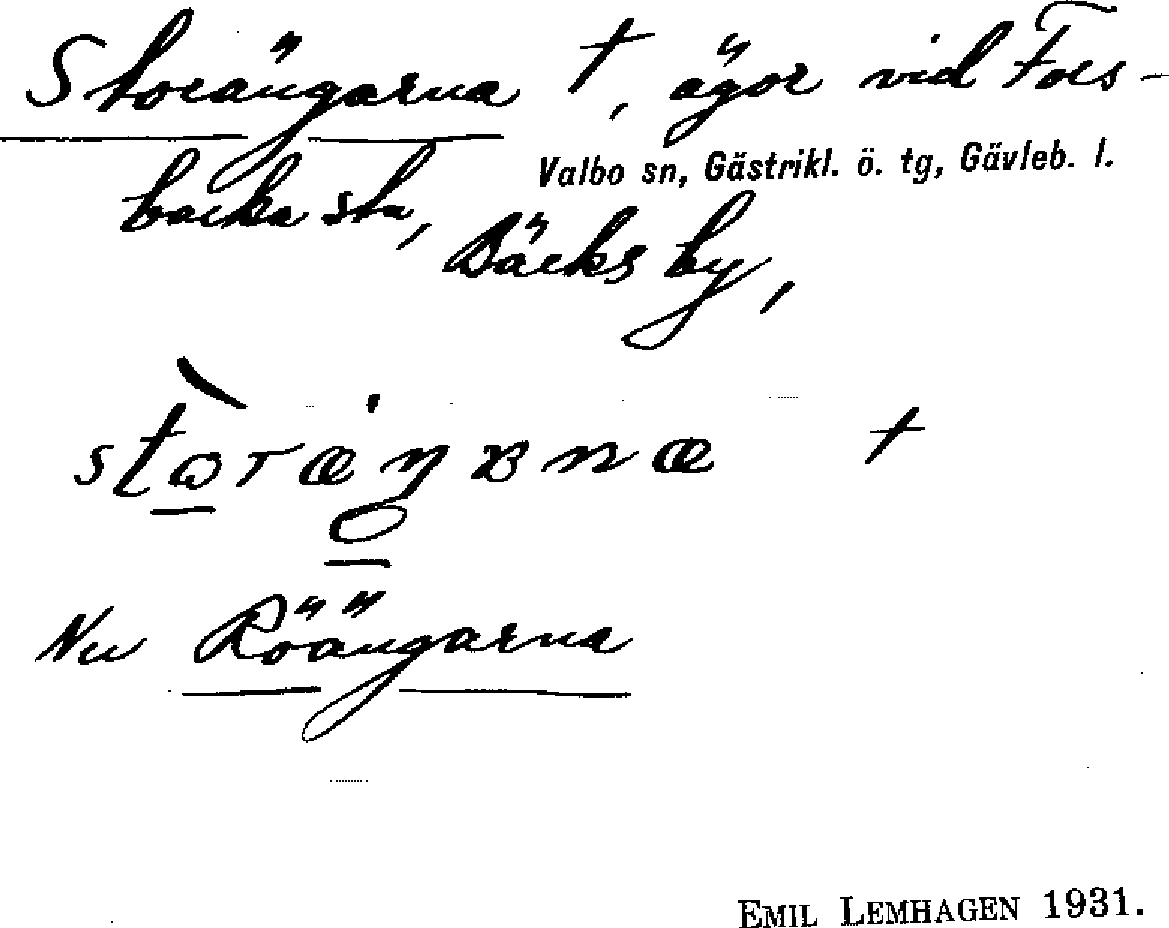 Storängarna †, ägor vid Fors-
Valbo sn, Gästrikl. ö. tg, Gävleb. l.
backa stn, Bäcks by,
†
Nu Röängarna
EMIL LEMHAGEN 1931.